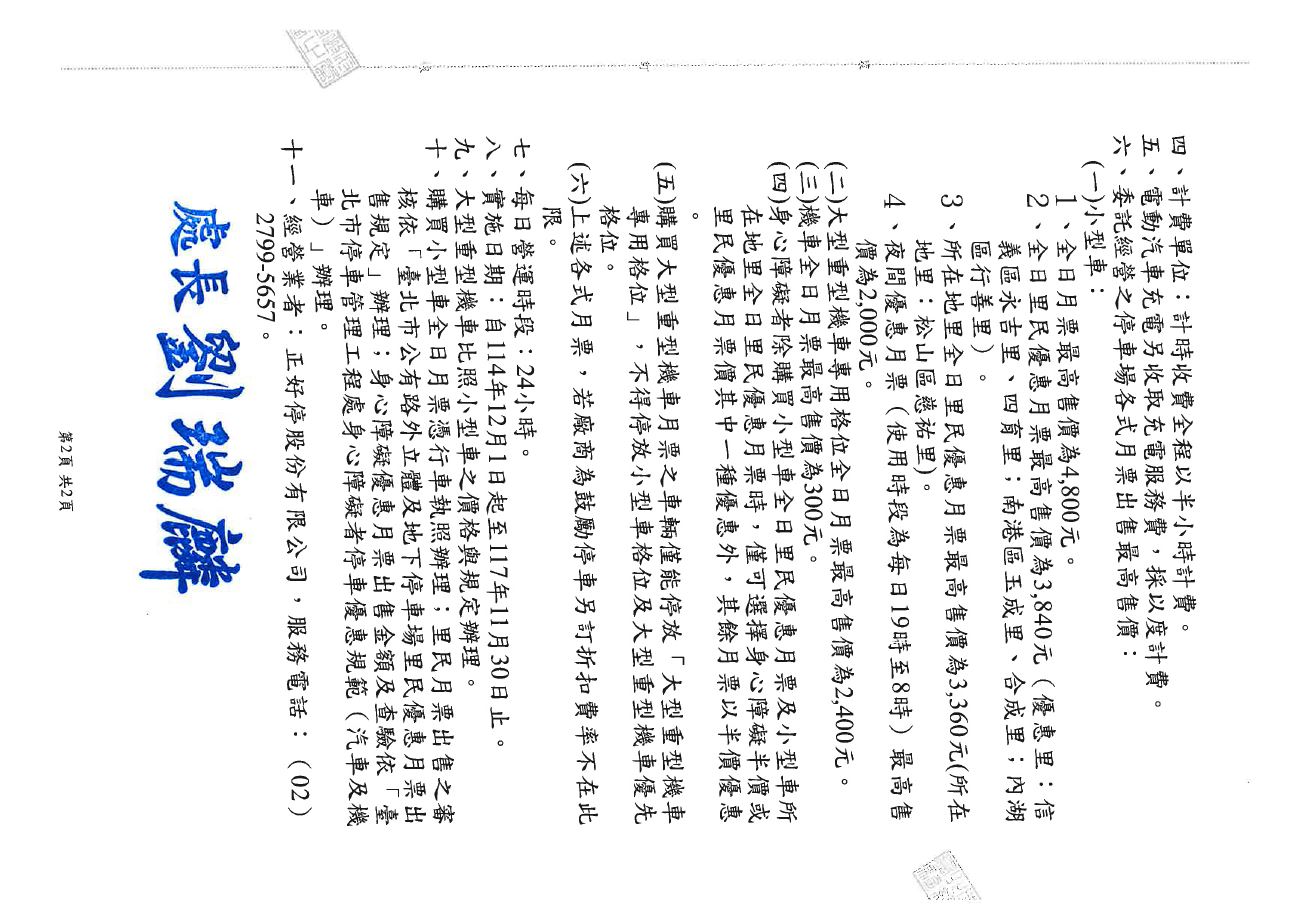 裝
訂
線
四、計費單位：計時收費全程以半小時計費。
五、電動汽車充電另收取充電服務費，採以度計費。
六、委託經營之停車場各式月票出售最高售價：
(一)小型車：
1、全日月票最高售價為4,800元。
2、全日里民優惠月票最高售價為3,840元（優惠里：信
義區永吉里、四育里；南港區玉成里、合成里；內湖
區行善里）。
3、所在地里全日里民優惠月票最高售價為3,360元(所在
地里：松山區慈祐里)。
4、夜間優惠月票（使用時段為每日19時至8時）最高售
價為2,000元。
(二)大型重型機車專用格位全日月票最高售價為2,400元。
(三)機車全日月票最高售價為300元。
(四)身心障礙者除購買小型車全日里民優惠月票及小型車所
在地里全日里民優惠月票時，僅可選擇身心障礙半價或
里民優惠月票價其中一種優惠外，其餘月票以半價優惠
。
(五)購買大型重型機車月票之車輛僅能停放「大型重型機車
專用格位」，不得停放小型車格位及大型重型機車優先
格位。
(六)上述各式月票，若廠商為鼓勵停車另訂折扣費率不在此
限。
七、每日營運時段：24小時。
八、實施日期：自114年12月1日起至117年11月30日止。
九、大型重型機車比照小型車之價格與規定辦理。
十、購買小型車全日月票憑行車執照辦理；里民月票出售之審
核依「臺北市公有路外立體及地下停車場里民優惠月票出
售規定」辦理；身心障礙優惠月票出售金額及查驗依「臺
北市停車管理工程處身心障礙者停車優惠規範（汽車及機
車）」辦理。
十一、經營業者：正好停股份有限公司，服務電話：（02）
2799-5657。
處長劉瑞麟
第2頁 共2頁